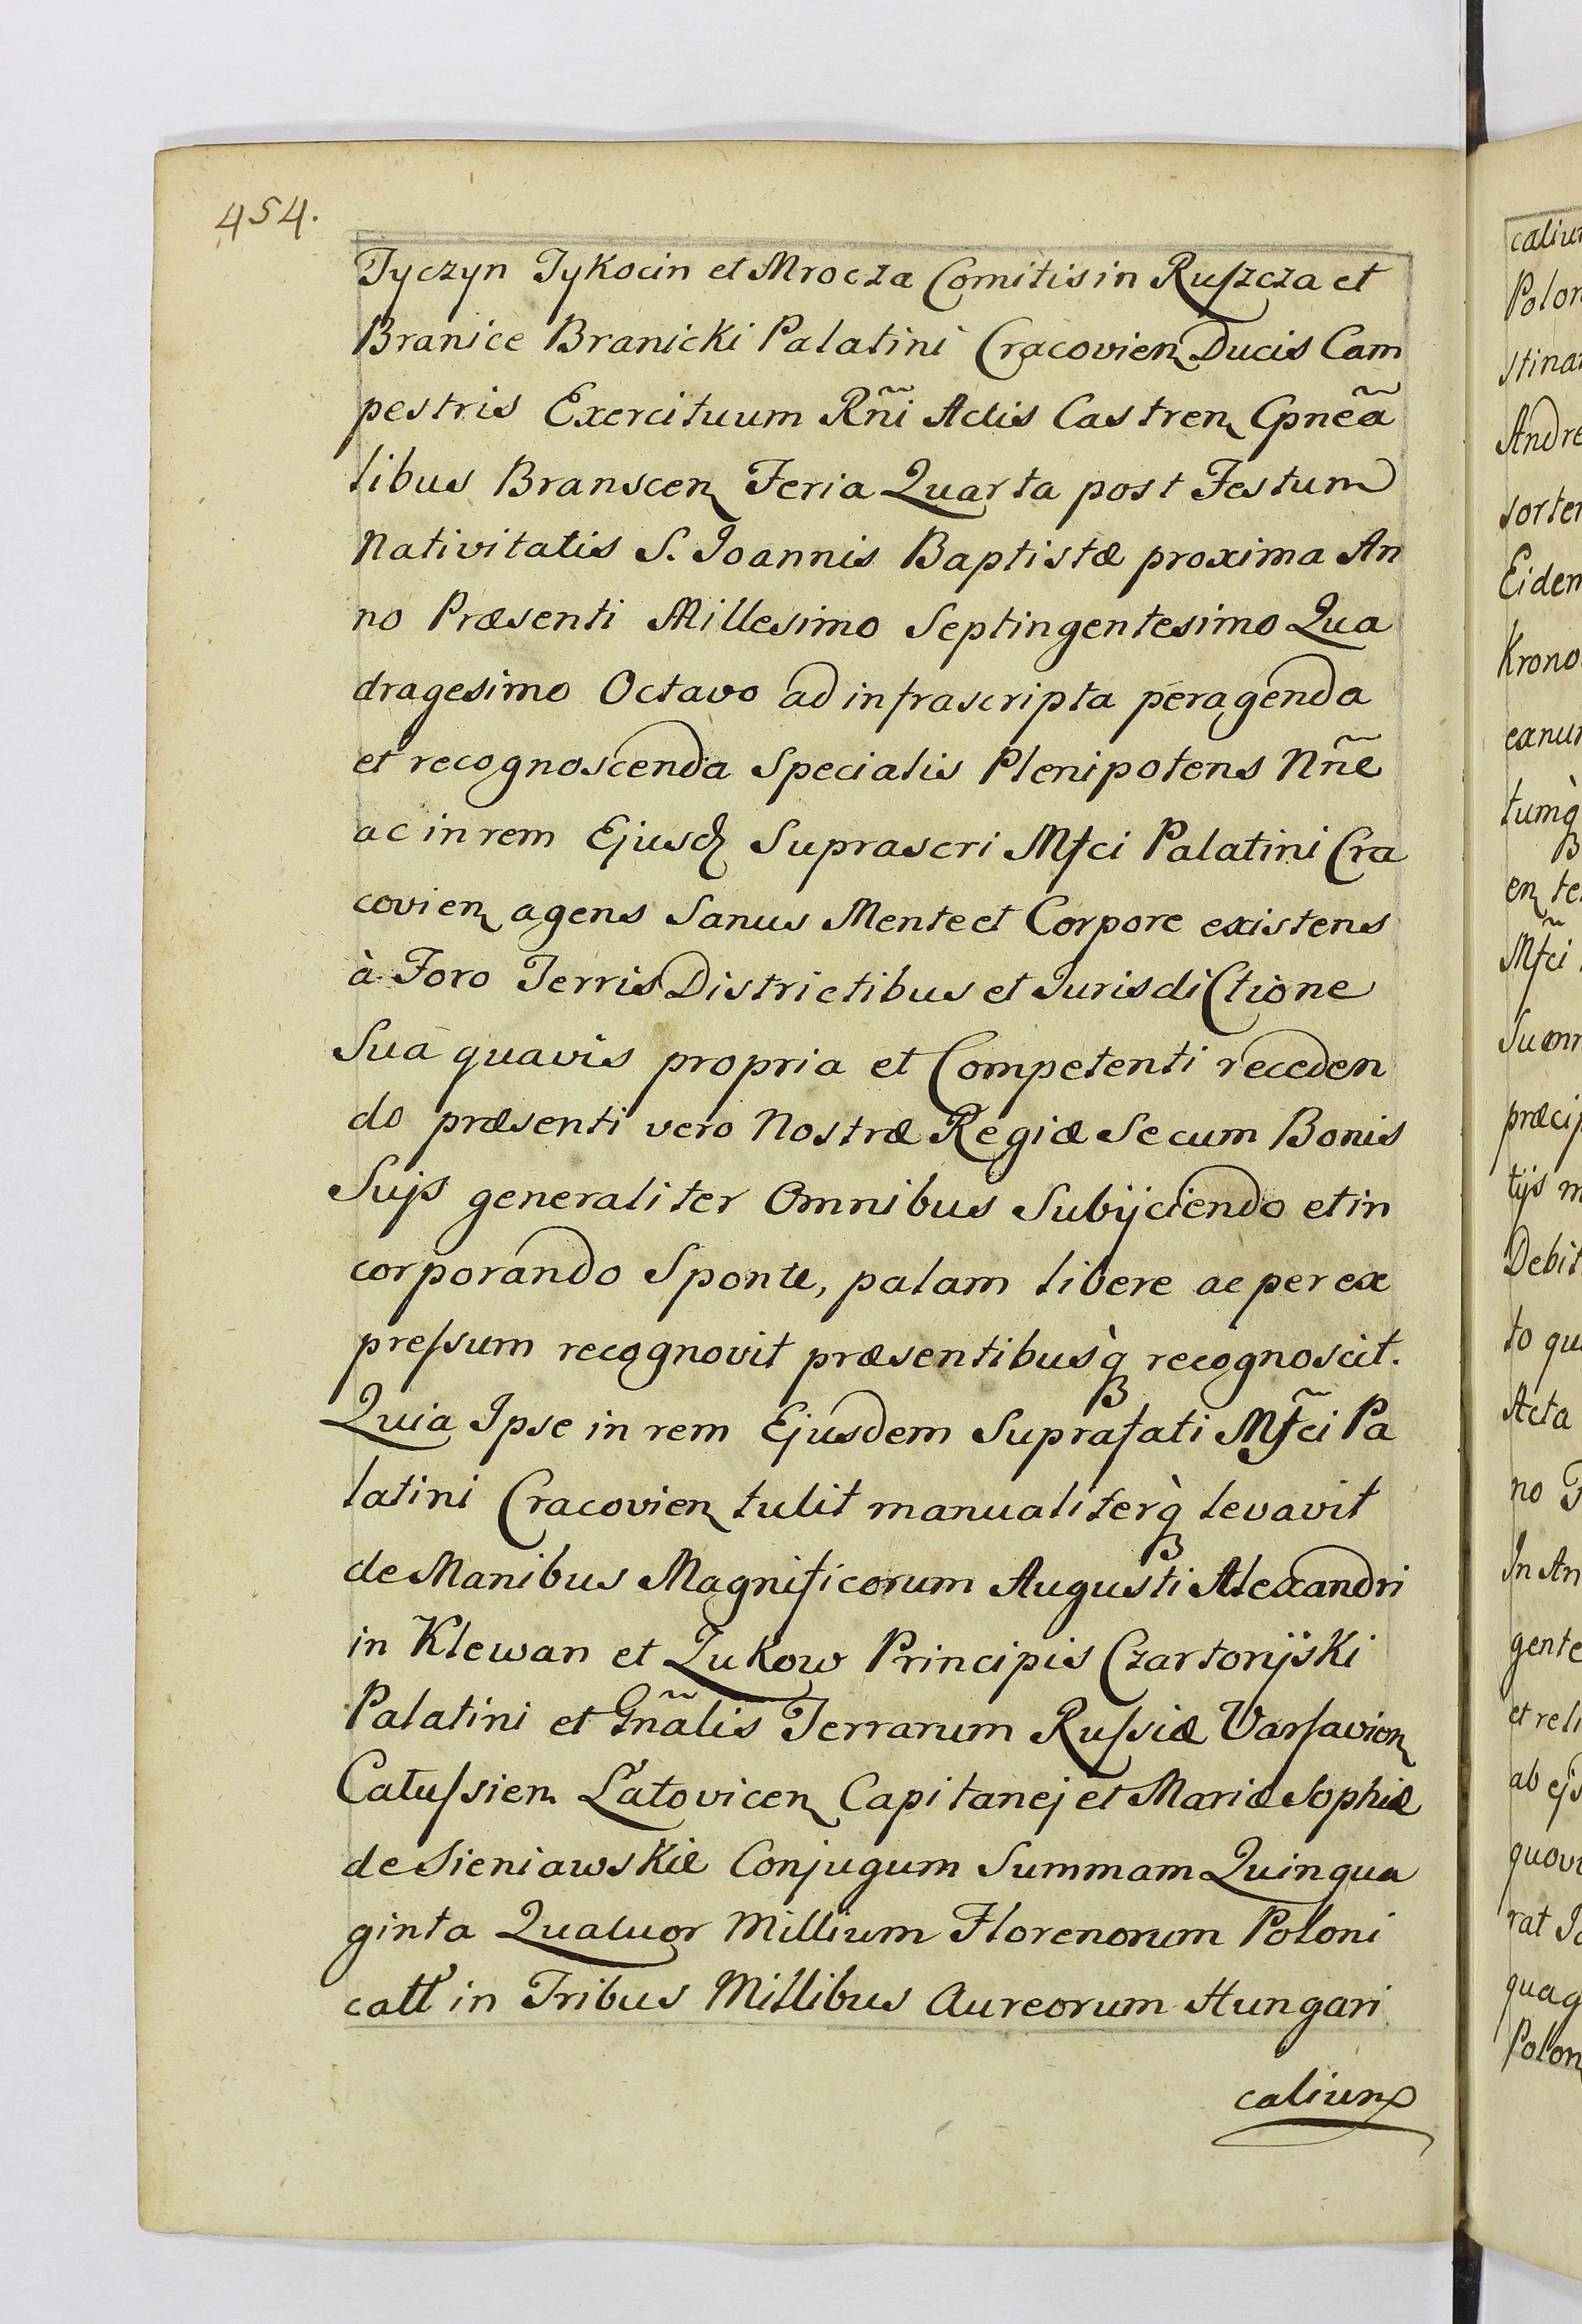 454.
Tyczyn Tykocin et Mrocza Comitis in Ruſzcza et
Branice Branicki Palatini Cracovien Ducis Cam
pestris Exercituum Rñi Actis Castren Cpneã
libus Branscen Feria Quarta post Festum
Nativitatis S. Joannis Baptistæ proxima An
no Præsenti Millesimo Septingentesimo Qua
dragesimo Octavo ad infrascripta peragenda
et recognoscenda Specialis Plenipotens Nñe
ac in rem Ejusd Suprascri Mfci Palatini Cra
covien agens Sanus Mente et Corpore existens
à Foro Terris Districtibus et Jurisdictione
Sua quavis propria et Competenti receden
do præsenti vero Nostræ Regiæ Se cum Bonis
Suis generaliter Omnibus Subijciendo et in
corporando Sponte, palam libere ac per ex
preſsum recognovit præsentibusq̀ recognoscit.
Quia Ipse in rem Ejusdem Suprafati Mf̃ci Pa
latini Cracovien tulit manualiterq̀ levavit
de Manibus Magnificorum Augusti Alexandri
in Klewan et Zukow Principis Czartorÿski
Palatini et Gñalis Terrarum Ruſsiæ Varſavien
Caluſsien Latovicen Capitanej et Mariæ Sophiæ
de Sieniawskie Conjugum Summam Quinqua
ginta Quatuor Millium Florenorum Poloni
call in Tribus Millibus Aureorum Hungari
calium
caliu
Polon
stina
Andre
sorte
Eidem
Krono
eanu
tumq̀
en te
Mf̃ci
Sum
præci
tijs m
Debit
to qu
Acta
no
In An
gente
et reli
ab ejs
quov
rat
quag
Polon